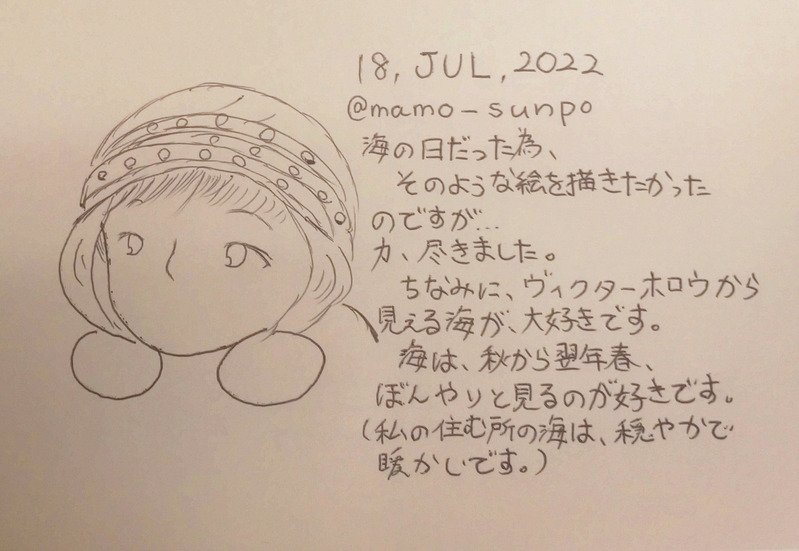 18, JUL, 2022
@mamo-sunpo
海の日だった為、
そのような絵を描きたかった
のですが…
力、尽きました。
ちなみに、ヴィクターホロウから
見える海が、大好きです。
海は、秋から翌年春、
ぼんやりと見るのが好きです。
(私の住む所の海は、穏やかで
暖かいです。)